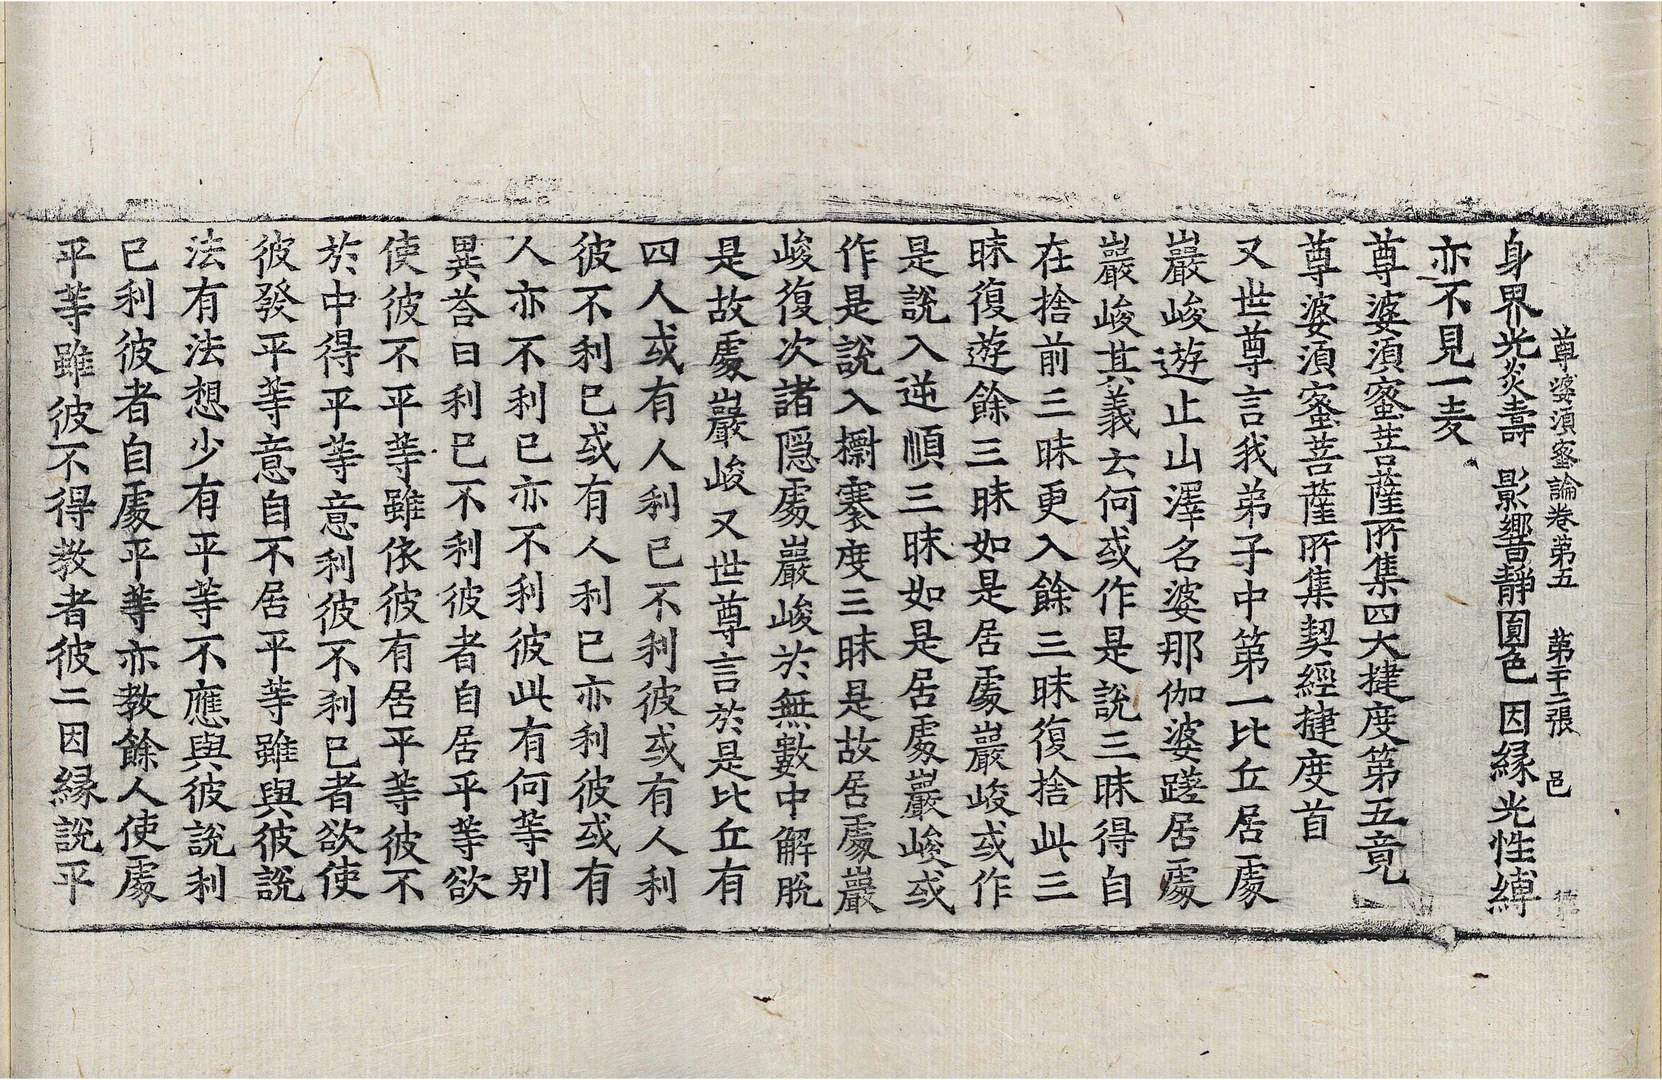 尊婆須蜜論卷苐五　苐二十二張　邑
身界光炎壽　影響靜圓色　因縁光性縛
亦不見一麦
尊婆須蜜菩薩所集四大揵度第五竟
尊婆須蜜菩薩所集契經揵度首
又世尊言我弟子中第一比丘居處
巖峻遊止山澤名婆那伽婆蹉居處
巖峻其義云何或作是說三昧得自
在捨前三昧更入餘三昧復捨此三
昧復遊餘三昧如是居處巖峻或作
是說入逆順三昧如是居處巖峻或
作是說入摋搴度三昧是故居處巖
峻復次諸隱處巖峻於無數中解脫
是故處巖峻 又世尊言於是比丘有
四人或有人利已不利彼或有人利
彼不利已或有人利已亦利彼或有
人亦不利已亦不利彼此有何等别
異荅曰利已不利彼者自居平等欲
使彼不平等雖依彼有居平等彼不
於中得平等意利彼不利已者欲使
彼發平等意自不居平等雖與彼說
法有法想少有平等不應與彼說利
已利彼者自處平等亦教餘人使處
平等雖彼不得教者彼二因縁說平